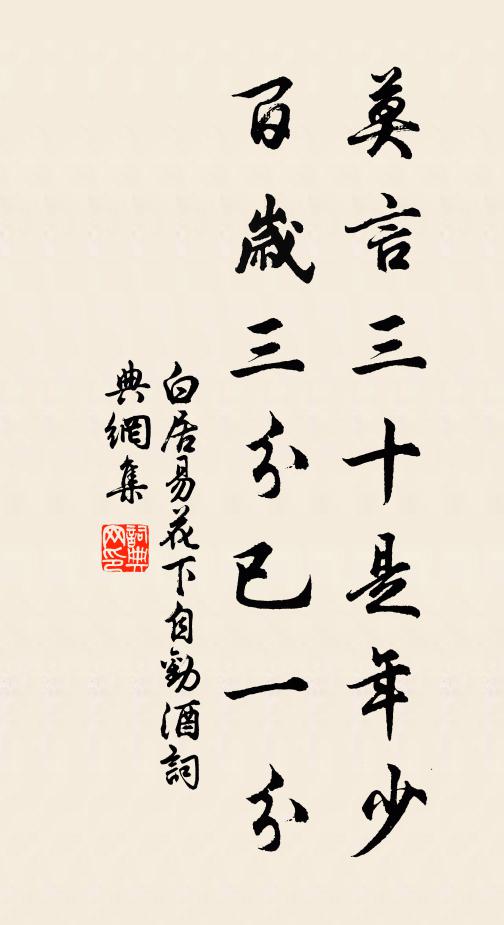 莫言三十是年少
百歲三分已一分
白居易花下自勸酒詞
典網集
詞典網印